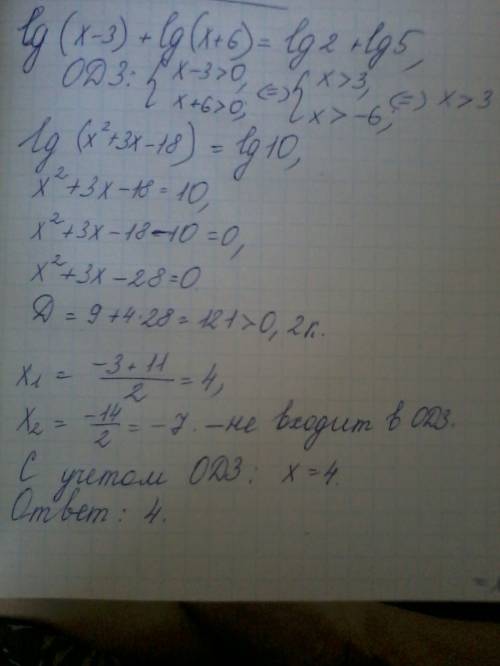 lg(x-3)+lg(x+6)=lg2+lg5,
ОДЗ: { x-3>0, x+6>0, <=> { x>3, x>-6, <=> x>3
lg(x²+3x-18)=lg10,
x²+3x-18=10,
x²+3x-18-10=0,
x²+3x-28=0
Д=9+4·28=121>0, 2к.
x₁ = (-3+11)/2 = 4,
x₂ = -14/2 = -7. - не входит в ОДЗ.
С учетом ОДЗ: x=4.
Ответ: 4.